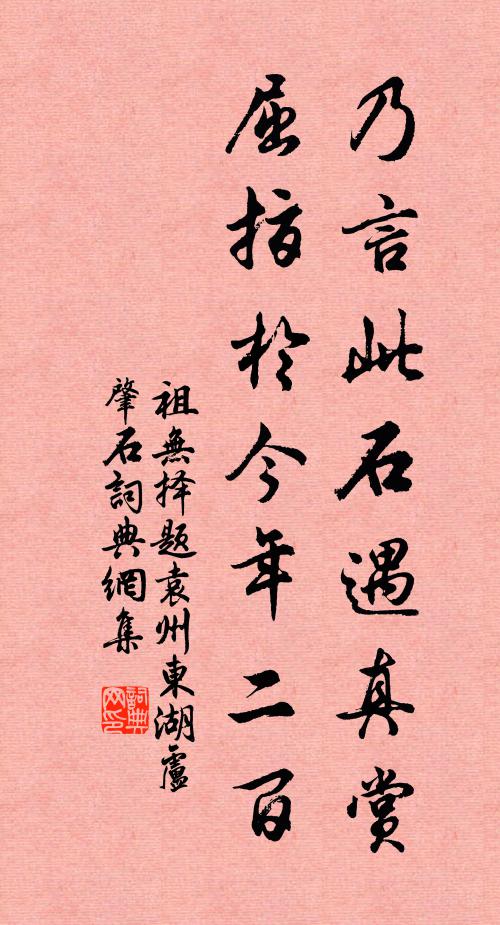 乃言此石遇真赏
屈指於今年二百
祖無择题袁州東湖盧
肇石詞典網集
詞典
网印